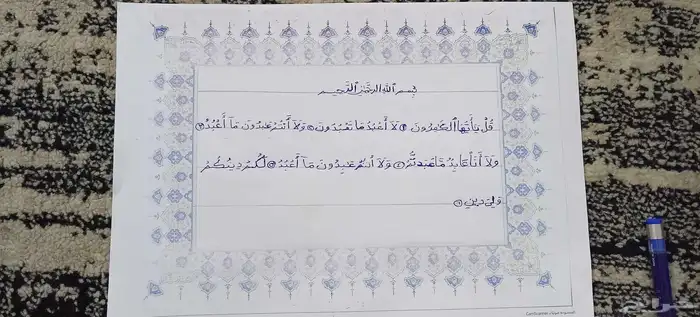 بِسْمِ اللَّهِ الرَّحْمَٰنِ الرَّحِيمِ
قُلْ يَٰأَيُّهَا ٱلْكَٰفِرُونَ ١ لَا أَعْبُدُ مَا تَعْبُدُونَ ٢ وَلَا أَنتُمْ عَٰبِدُونَ مَا أَعْبُدُ ٣
وَلَا أَنَا عَابِدٌ مَّا عَبَدتُّمْ ٤ وَلَا أَنتُمْ عَٰبِدُونَ مَا أَعْبُدُ ٥ لَكُمْ دِينُكُمْ
وَلِيَ دِينِ ٦
حراج
CamScanner